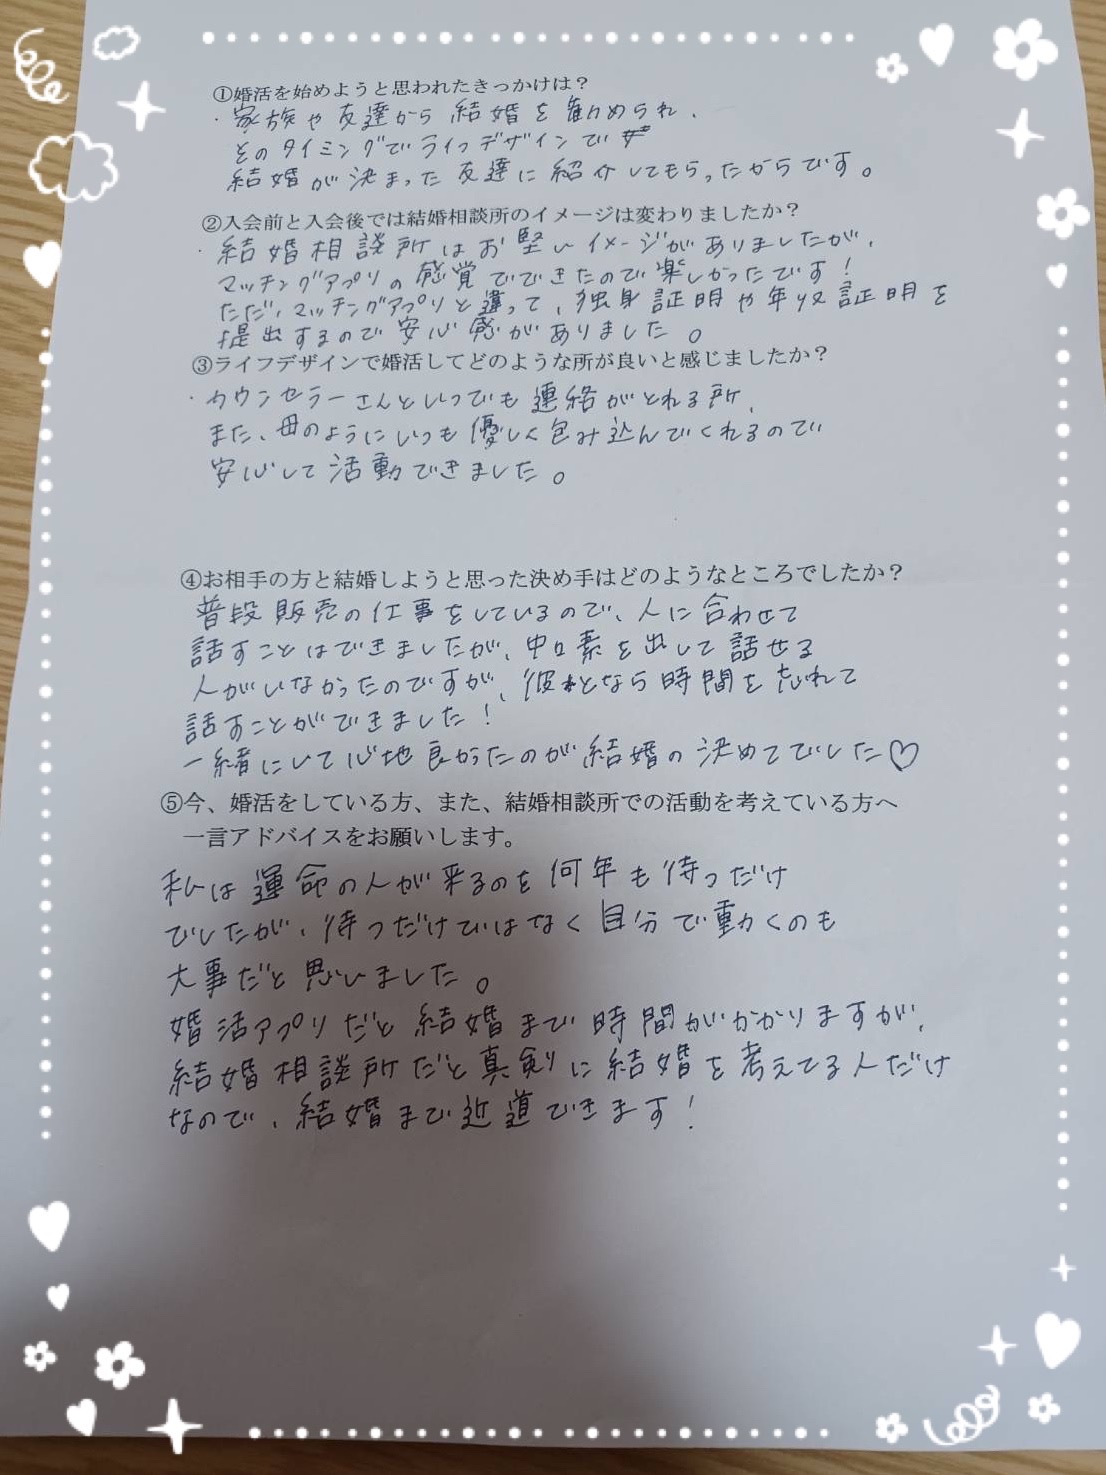 ①婚活を始めようと思われたきっかけは？
・家族や友達から結婚を勧められ、
そのタイミングでライフデザインで
結婚が決まった友達に紹介してもらったからです。
②入会前と入会後では結婚相談所のイメージは変わりましたか？
・結婚相談所はお堅いイメージがありましたが、
マッチングアプリの感覚でできたので楽しかったです！
ただ、マッチングアプリと違って、独身証明や年収証明を
提出するので安心感がありました。
③ライフデザインで婚活してどのような所が良いと感じましたか？
・カウンセラーさんといつでも連絡がとれる所、
また、母のようにいつも優しく包み込んでくれるので
安心して活動できました。
④お相手の方と結婚しようと思った決め手はどのようなところでしたか？
普段販売の仕事をしているので、人に合わせて
話すことはできましたが、中々素を出して話せる
人がいなかったのですが、彼となら時間を忘れて
話すことができました！
一緒にいて心地良かったのが結婚の決めてでした♡
⑤今、婚活をしている方、また、結婚相談所での活動を考えている方へ
一言アドバイスをお願いします。
私は運命の人が来るのを何年も待つだけ
でしたが、待つだけではなく自分で動くのも
大事だと思いました。
婚活アプリだと結婚まで時間がかかりますが、
結婚相談所だと真剣に結婚を考えてる人だけ
なので、結婚まで近道できます！